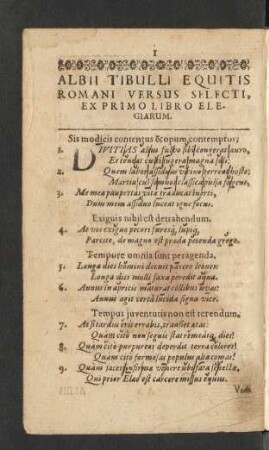 1
ALBII TIBULLI EQUITIS
ROMANI VERSUS SELECTI,
EX PRIMO LIBRO ELE-
GIARUM.
Sis modicis contentus & opum contemptor:
1. DIVITIAS alius fulvo sibi congerat auro,
Et teneat culti jugera magna soli:
2. Quem labor assiduus vicino terreat hoste;
Martia cui somnos classica pulsa fugent.
3. Me mea paupertas vitæ traducat inerti,
Dum meus assiduo luceat igne focus.
Exiguis nihil est detrahendum.
4. At vos exiguo pecori furesq; lupiq;
Parcite, de magno est præda petenda grege.
Tempore omnia sunt peragenda.
5. Longa dies homini docuit parere leones:
Longa dies molli saxa peredit aqua.
6. Annus in apricis maturat collibus uvas:
Annus agit certa lucida signa vice.
Tempus juventutis non est terendum.
7. At si tardus eris errabis, transiet ætas:
Quàm citò non segnis stat remeatq; dies!
8. Quàm citò purpureos deperdit terra colores!
Quàm citò formosas populus alta comas!
9. Quàm jacet,
Qui prior Eleo est carcere missus equus.